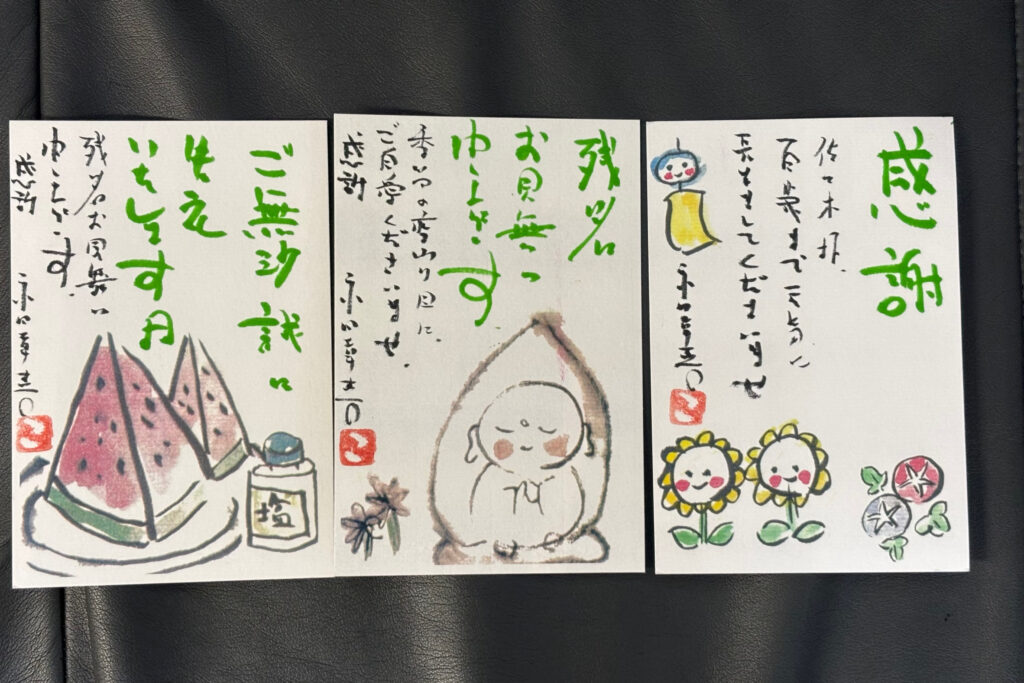 ご無沙誠に
失礼
いたします
残暑お見舞い
申し上げます。
感謝
塩
残暑
お見舞い
申し上げます
季節の変わり目に、
ご自愛くださいませ。
感謝
感謝
佐々木様、
百歳まで元気に
長生きしてくださいませ